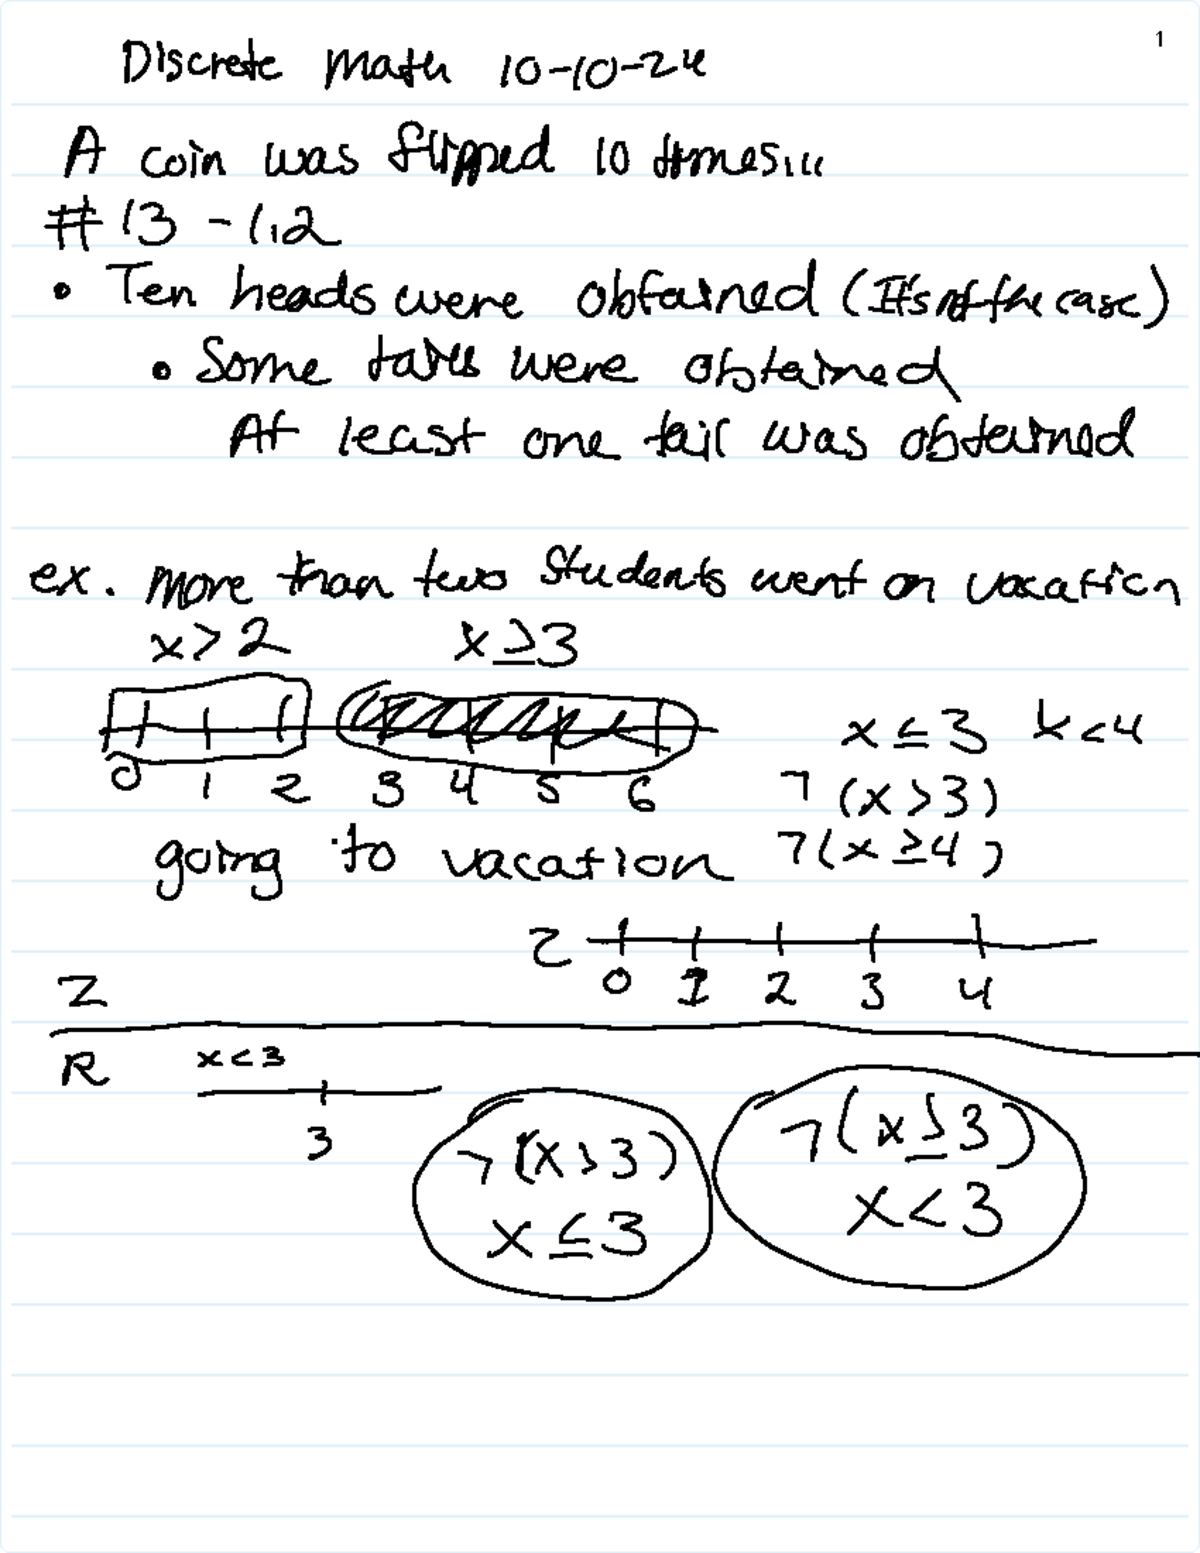 1
Discrete Math 10-10-24
A coin was flipped 10 times...
# 13 - 1.2
• Ten heads were obtained (It's not the case)
• Some tails were obtained
At least one tail was obtained
ex. More than two students went on vacation
x > 2 x ≥ 3
0 1 2 3 4 5 6
x ≤ 3 x < 4
¬ (x > 3)
going to vacation ¬(x ≥ 4)
Z
0 1 2 3 4
Z
R x < 3
3
¬ (x > 3)
x ≤ 3
¬ (x ≥ 3)
x < 3